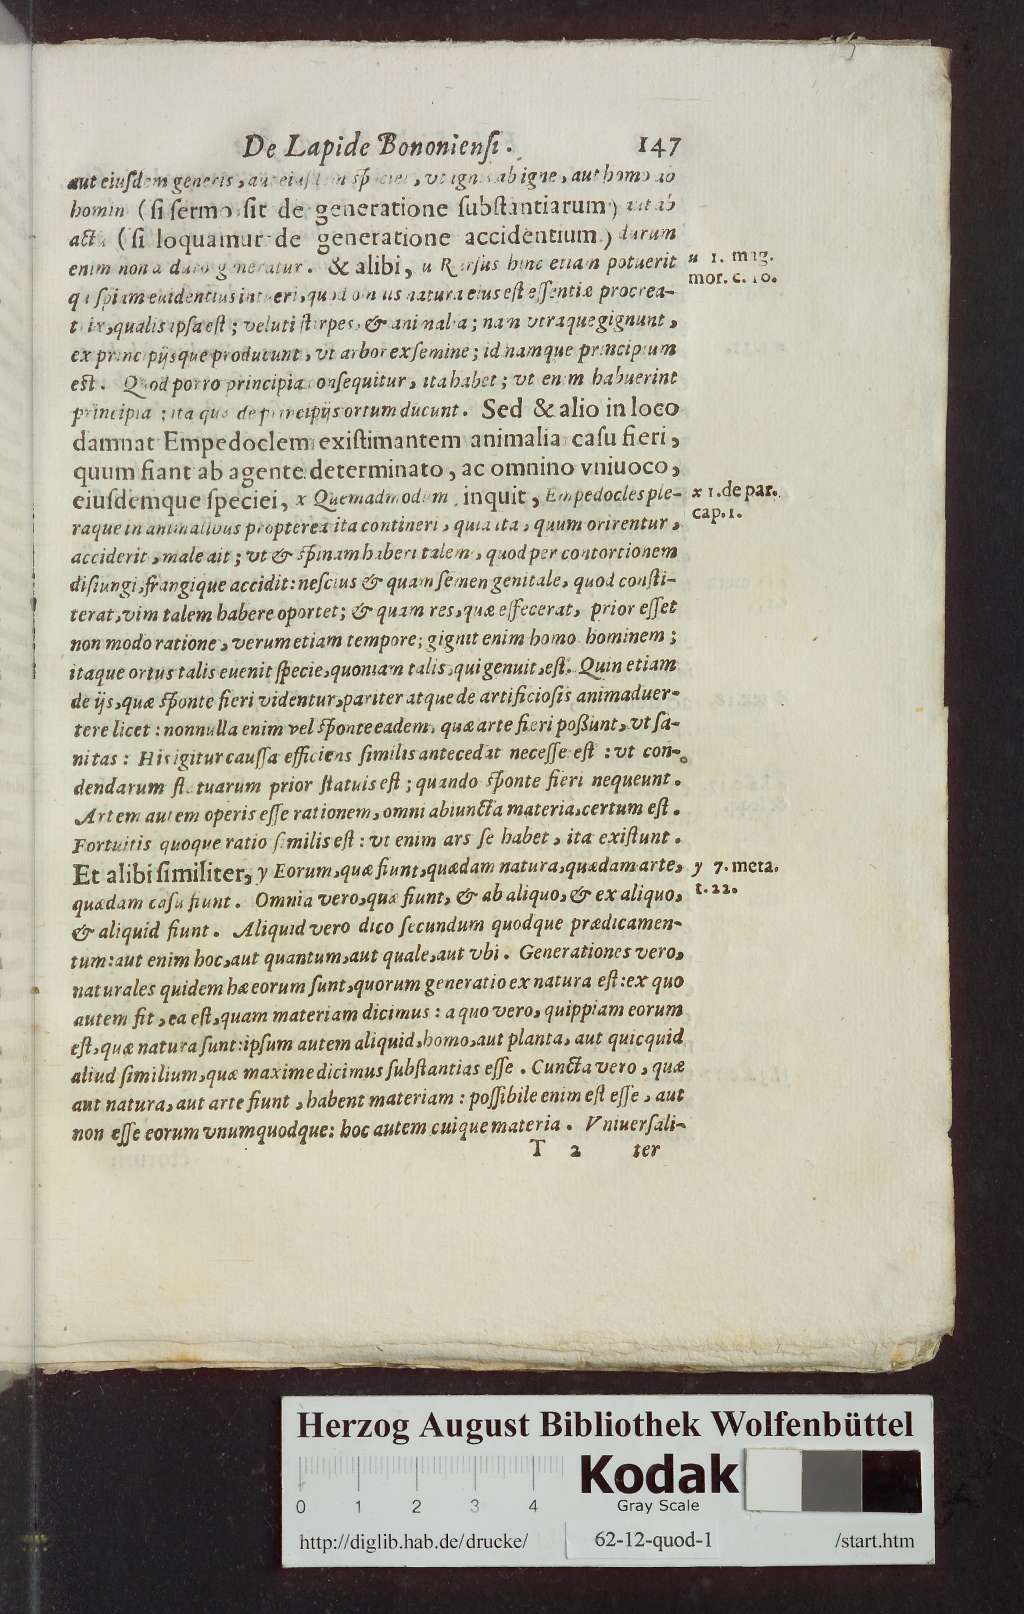 De Lapide Bononiensi. 147
aut eiuſdem generis, aut eiuſdem ſpeciei, vt ignis ab igne, aut homo ab
homin (ſi ſermo ſit de generatione ſubſtantiarum) aut ab
actu (ſi loquamur de generatione accidentium) durum
enim non a duro generatur. & alibi, u Rurſus hinc etiam potuerit
quiſpiam euidentius intueri, quod omnis natura eius eſt eſſentiæ procrea-
trix, qualis ipſa eſt; veluti ſtirpes, & animalia; nam vtraque gignunt,
ex principijsque producunt, vt arbor ex ſemine; id namque principium
eſt. Quod porro principia conſequitur, ita habet; vt enim habuerint
principia; ita quæ de principijs ortum ducunt. Sed & alio in loco
damnat Empedoclem exiſtimantem animalia caſu fieri,
quum fiant ab agente determinato, ac omnino vniuoco,
eiuſdemque ſpeciei, x Quemadmodum inquit, Empedocles ple-
raque in animalibus propterea ita contineri, quia ita, quum orirentur,
acciderit, male ait; vt & ſpinam haberi talem, quod per contortionem
diſiungi, frangique accidit: neſcius & quam ſemen genitale, quod conſti-
terat, vim talem habere oportet; & quam res, quæ effecerat, prior eſſet
non modo ratione, verum etiam tempore; gignit enim homo hominem;
itaque ortus talis euenit ſpecie, quoniam talis, qui genuit, eſt. Quin etiam
de ijs, quæ ſponte fieri videntur, pariter atque de artificioſis animaduer-
tere licet: nonnulla enim vel ſponte eadem, quæ arte fieri poßunt, vt ſa-
nitas: His igitur cauſſa efficiens ſimilis antecedat neceſſe eſt: vt con-
dendarum ſtatuarum prior ſtatuis eſt; quando ſponte fieri nequeunt.
Artem autem operis eſſe rationem, omni abiuncta materia, certum eſt.
Fortuitis quoque ratio ſimilis eſt: vt enim ars ſe habet, ita exiſtunt.
Et alibi ſimiliter, y Eorum, quæ fiunt, quædam natura, quædam arte,
quædam caſu fiunt. Omnia vero, quæ fiunt, & ab aliquo, & ex aliquo,
& aliquid fiunt. Aliquid vero dico ſecundum quodque prædicamen-
tum: aut enim hoc, aut quantum, aut quale, aut vbi. Generationes vero,
naturales quidem hæ eorum ſunt, quorum generatio ex natura eſt: ex quo
autem fit, ea eſt, quam materiam dicimus: a quo vero, quippiam eorum
eſt, quæ natura ſunt: ipſum autem aliquid, homo, aut planta, aut quicquid
aliud ſimilium, quæ maxime dicimus ſubſtantias eſſe. Cuncta vero, quæ
aut natura, aut arte fiunt, habent materiam: poſſibile enim eſt eſſe, aut
non eſſe eorum vnumquodque: hoc autem cuique materia. Vniuerſali-
T 2 ter
u 1. mag.
mor. c. 10.
x 1. de par.
cap. 1.
y 7. meta.
t. 22.
Herzog August Bibliothek Wolfenbüttel
0 1 2 3 4
Kodak
Gray Scale
http://diglib.hab.de/drucke/ 62-12-quod-1 /start.htm